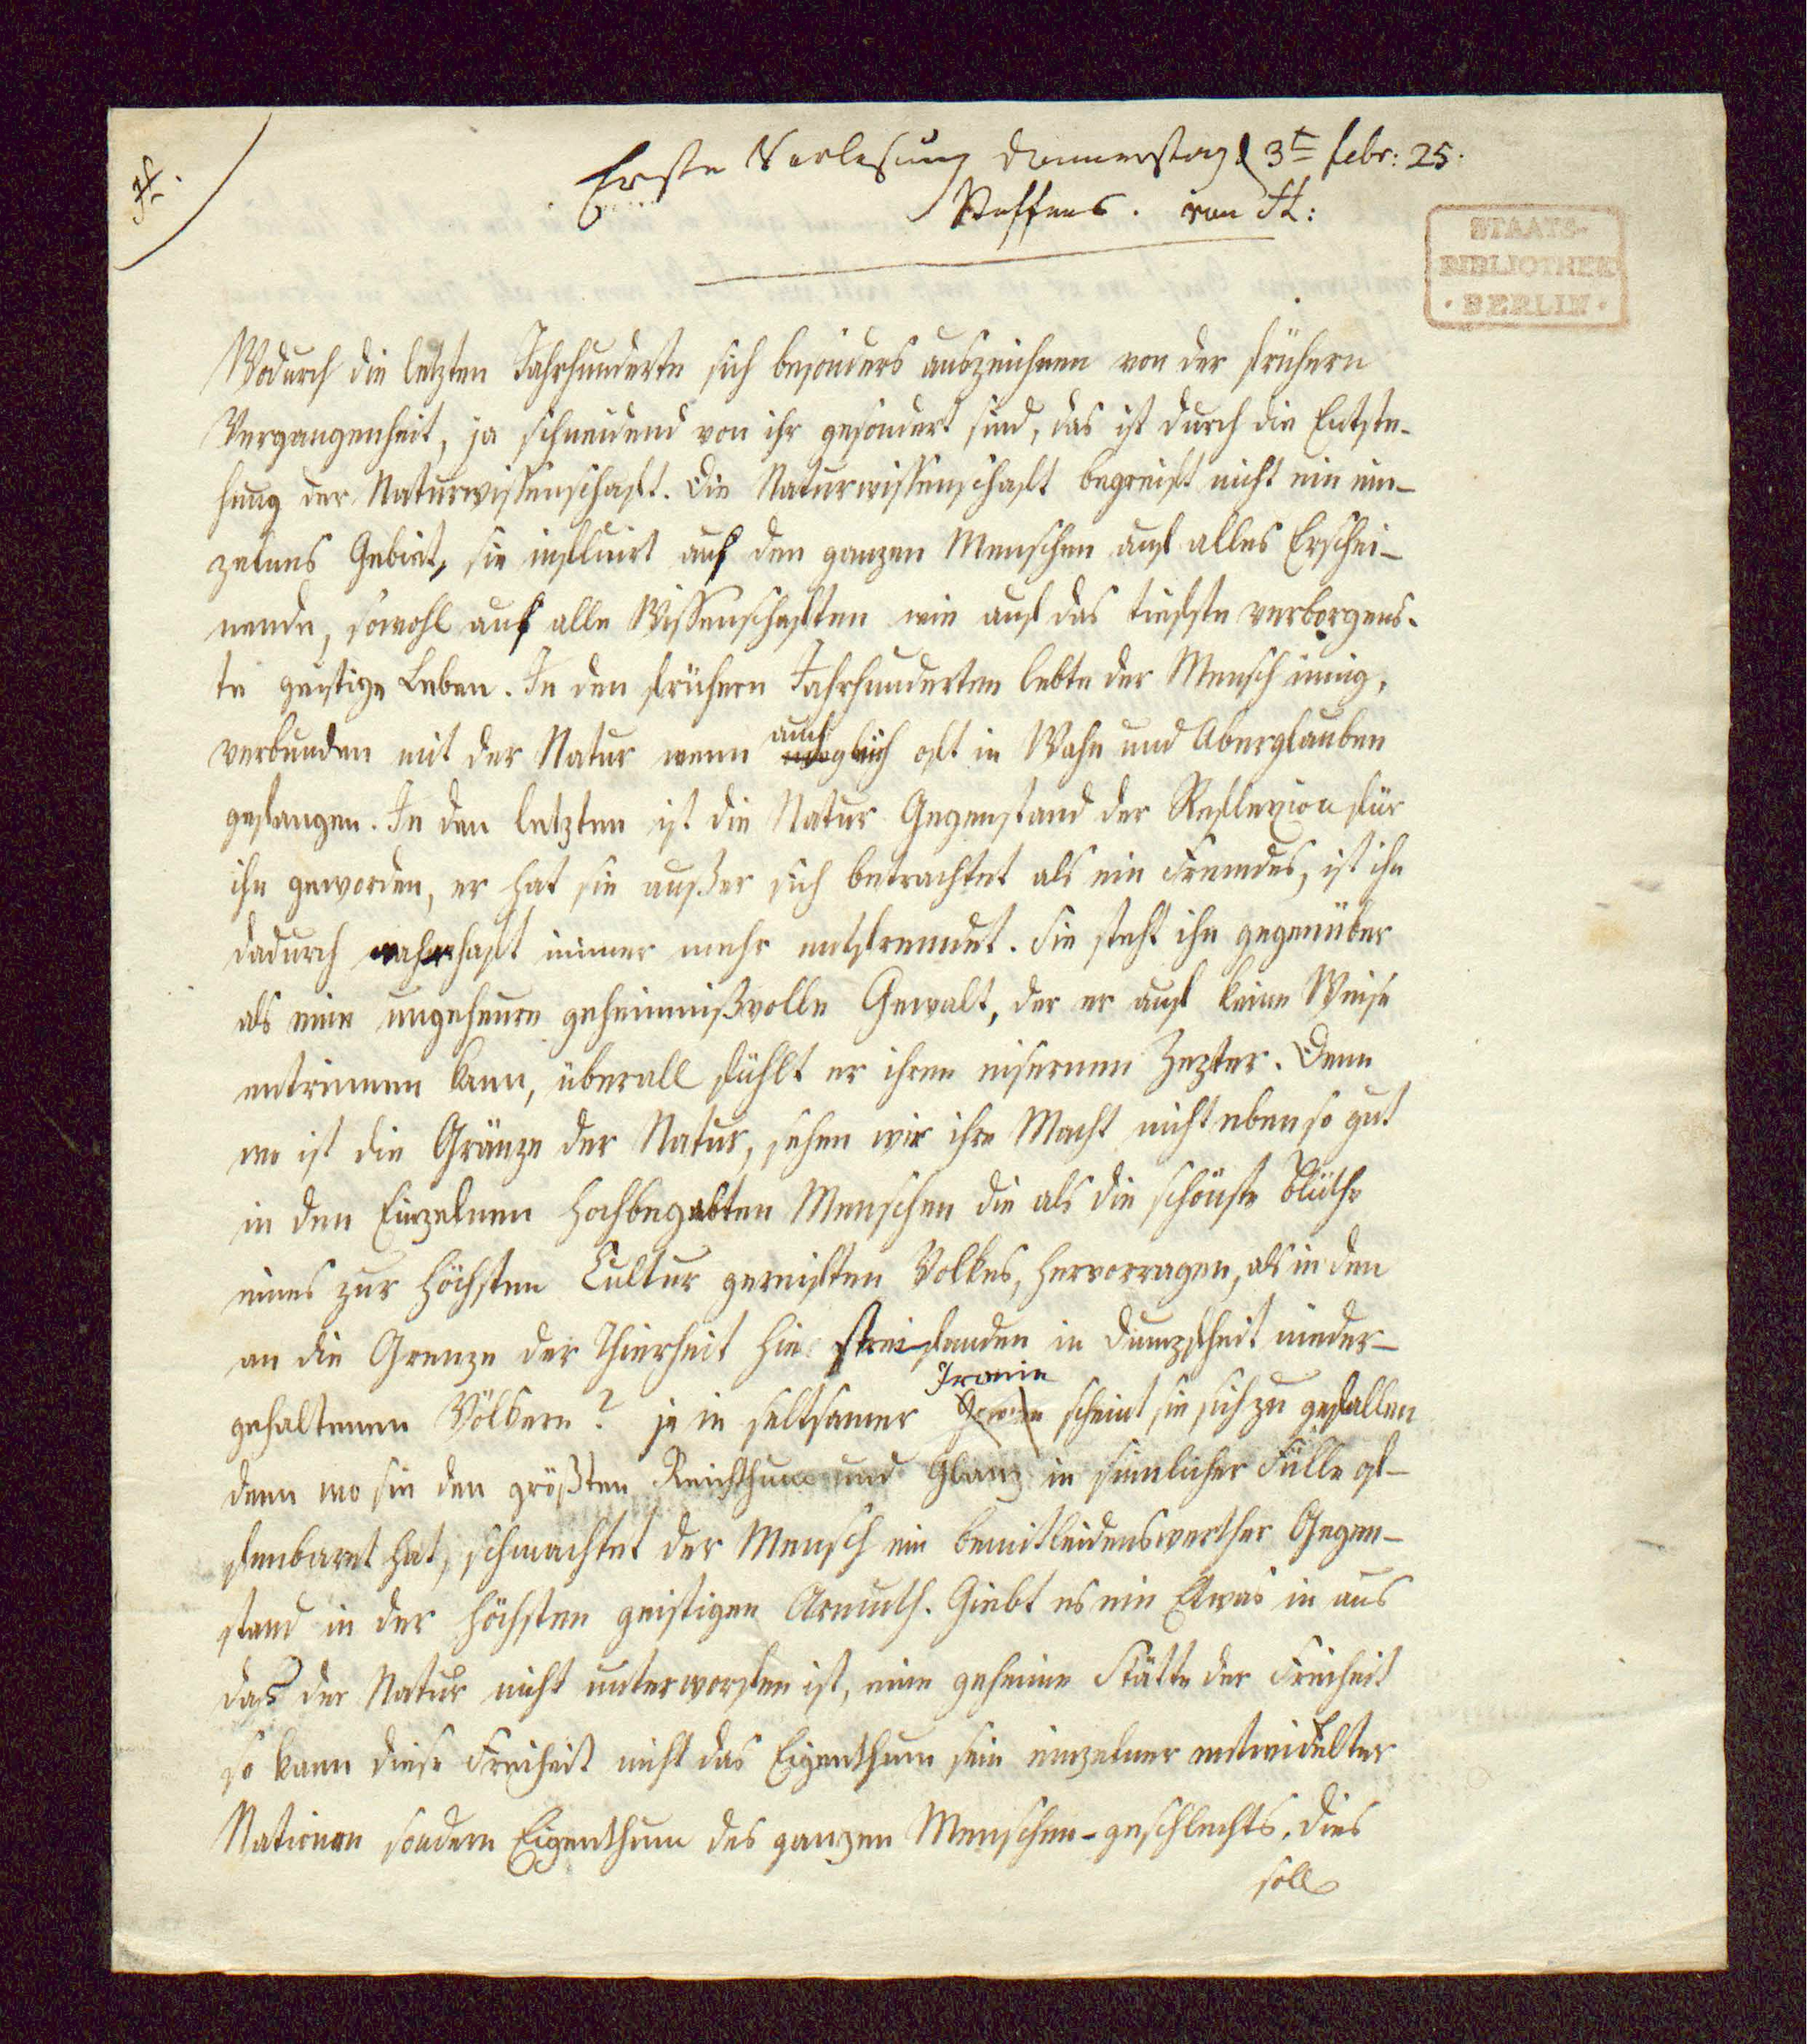 Erste Vorlesung Donnerstag d 3t febr: 25.
Steffens. von St:
STAATS-
BIBLIOTHEK
· BERLIN ·
Wodurch die letzten Jahrhunderte sich besonders auszeichnen von der frühern
Vergangenheit, ja schneidend von ihr gesondert sind, das ist durch die Entste-
hung der Naturwissenschaft. Die Naturwissenschaft begreift nicht ein ein-
zelnes Gebiet, sie influirt auf den ganzen Menschen auf alles Erschei-
nende, sowohl auf alle Wissenschaften wie auf das tiefste verborgens-
te geistige Leben. In den frühern Jahrhunderten lebte der Mensch innig,
verbunden mit der Natur wenn auch oft in Wahn und Aberglauben
gefangen. In den letzten ist die Natur Gegenstand der Reflexion für
ihn geworden, er hat sie außer sich betrachtet als ein Fremdes, ist ihr
dadurch wahrhaft immer mehr entfremdet. Sie steht ihm gegenüber
als eine ungeheure geheimnißvolle Gewalt, der er auf keine Weise
entrinnen kann, überall fühlt er ihren eisernen Zepter. Denn
wo ist die Gränze der Natur, sehen wir ihre Macht nicht eben so gut
in den Einzelnen hochbegabten Menschen die als die schönste Blüthe
eines zur höchsten Cultur gereiften Volkes, hervorragen, als in den
an die Grenze der Thierheit hin streifenden in Dumpfheit nieder-
gehaltenen Völkern? ja in seltsamer Ironie scheint sie sich zu gefallen
denn wo sie den größten Reichthum und Glanz in sinnlicher Fülle of-
fenbaret hat, schmachtet der Mensch ein bemitleidenswerther Gegen-
stand in der höchsten geistigen Armuth. Giebt es ein Etwas in uns
das der Natur nicht unterworfen ist, eine geheime Stätte der Freiheit
so kann diese Freiheit nicht das Eigenthum sein einzelner entwickelter
Nationen sondern Eigenthum des ganzen Menschen-geschlechts. Dies
soll